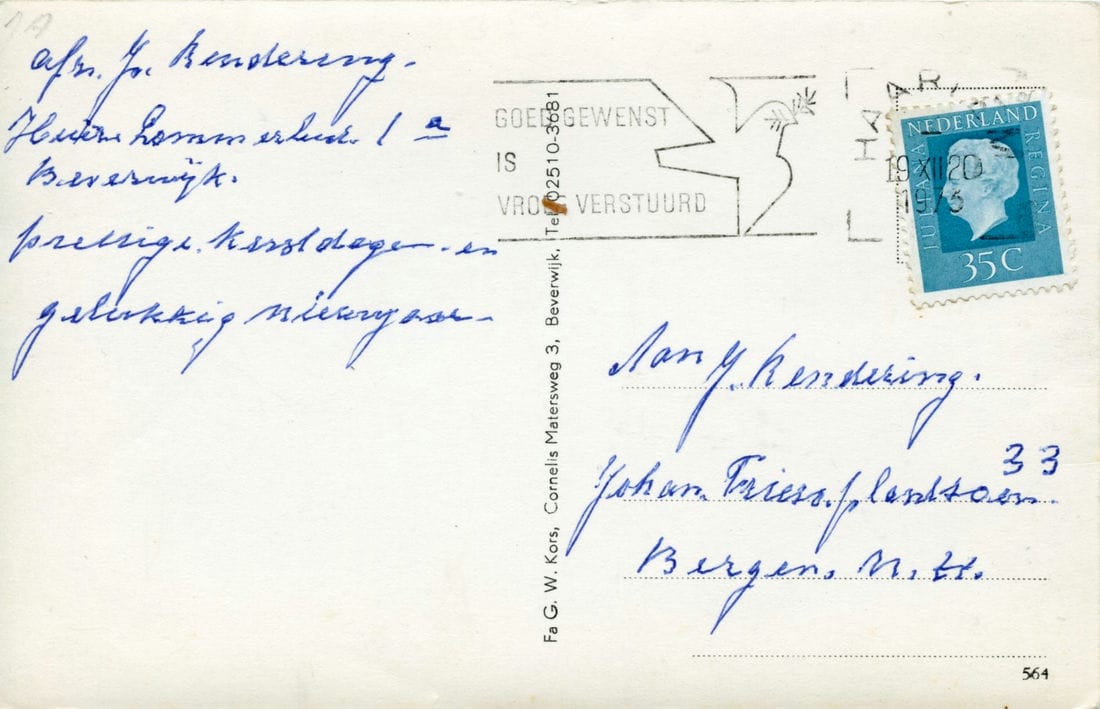 afz. Jo. Rendering.
Huize Lommerlust. 1 a
Beverwijk.
prettige. Kerstdagen. en
gelukkig nieuwjaar.
GOED GEWENST
IS
VROEG VERSTUURD
HAARLEM
19 XII 20
1973
NEDERLAND
JULIANA REGINA
35 C
Fa G. W. Kors, Cornelis Matersweg 3, Beverwijk, Tel. 02510-3681
Aan J. Rendering.
33
Johan. plantsoen.
Bergen. N. H.
564